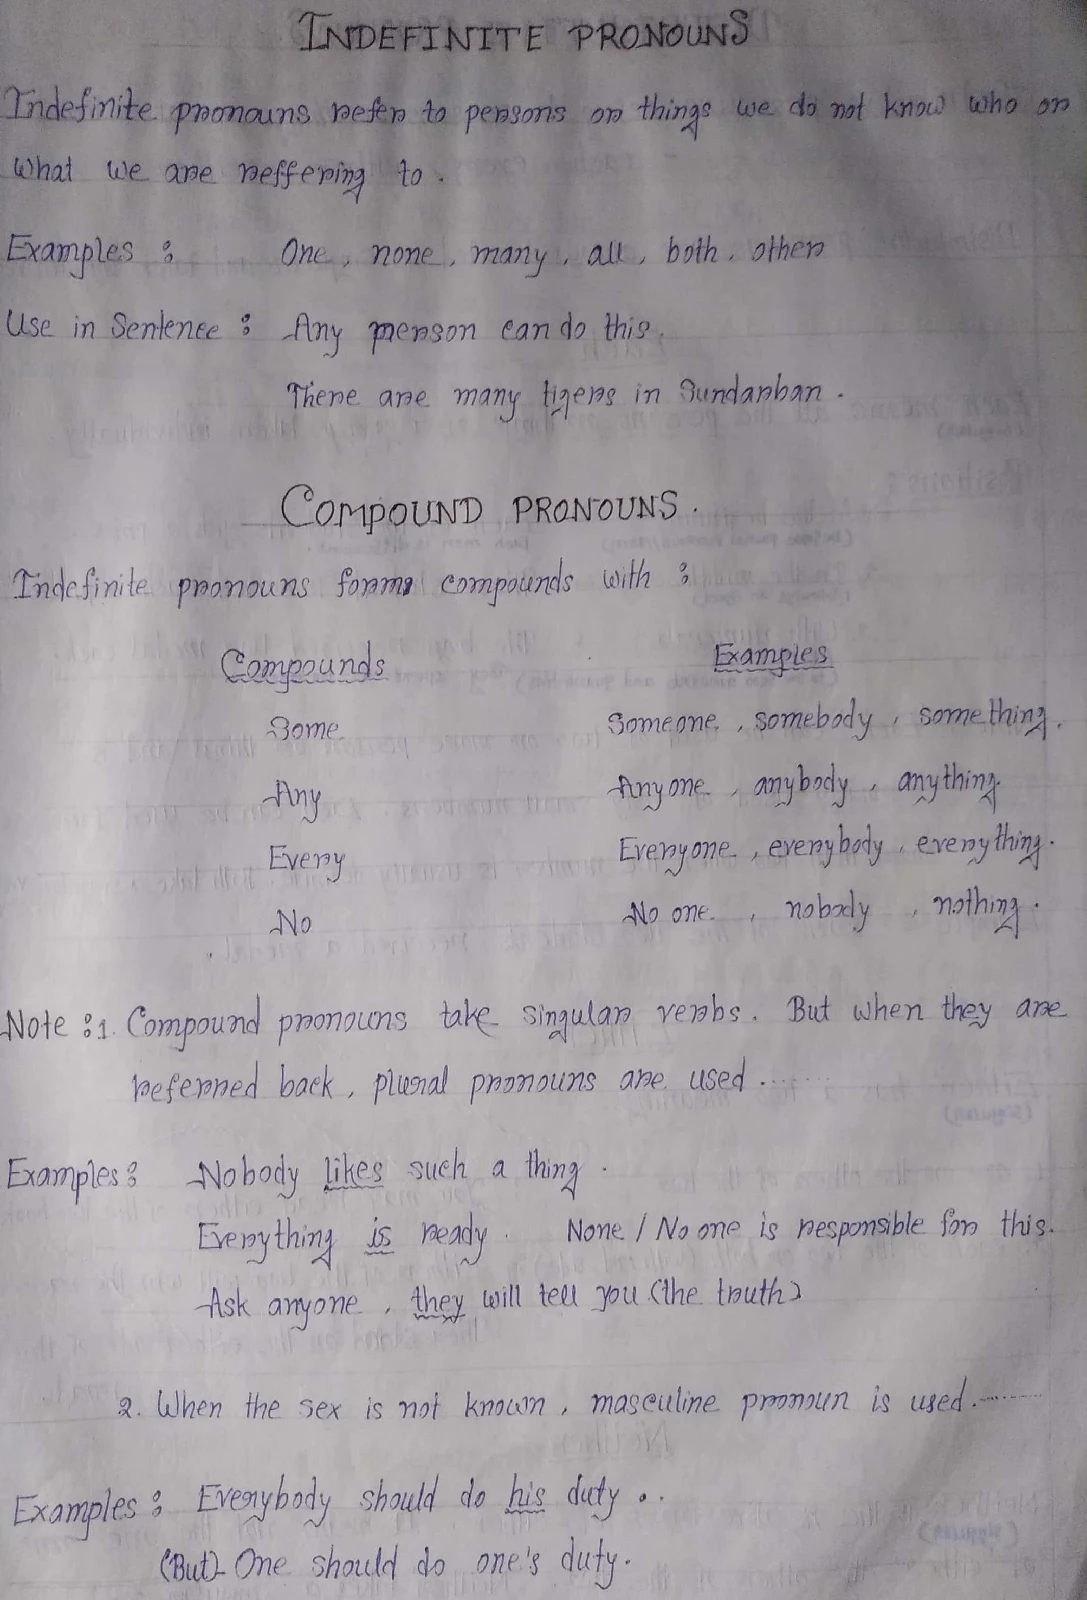 INDEFINITE PRONOUNS
Indefinite pronouns refer to persons or things we do not know who or
what we are reffering to.
Examples : One, none, many, all, both, other
Use in Sentence : Any person can do this.
There are many tigers in Sundarban.
COMPOUND PRONOUNS.
Indefinite pronouns forms compounds with :
Compounds Examples
Some Someone, somebody, something.
Any Anyone, anybody, anything.
Every Everyone, everybody, everything.
No No one, nobody, nothing.
Note : 1. Compound pronouns take singular verbs. But when they are
referred back, plural pronouns are used......
Examples : Nobody likes such a thing.
Everything is ready. None / No one is responsible for this.
Ask anyone, they will tell you (the truth)
2. When the sex is not known, masculine pronoun is used.......
Examples : Everybody should do his duty..
(But) One should do one's duty.